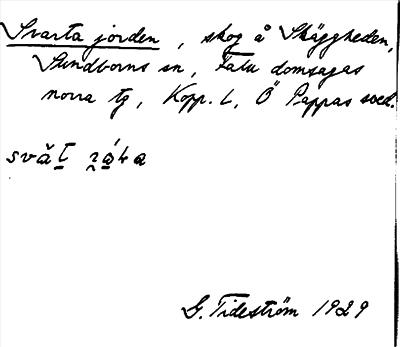 Svarta jorden, skog å Skäggheden,
Sundborns sn, Falu domsagas
norra tg, Kopp. L, Ö Pappas sock.
svăt
G. Tideström 1929